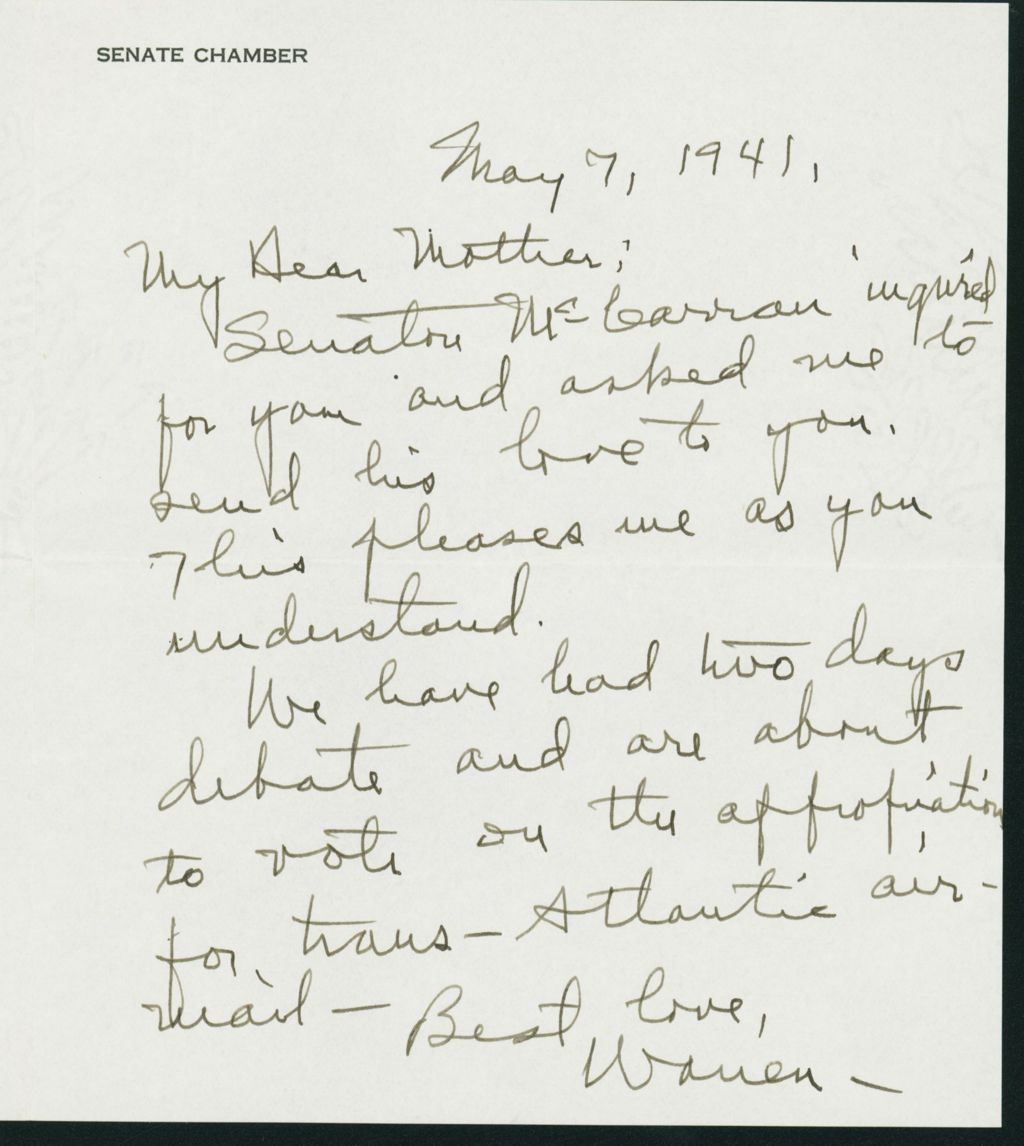 SENATE CHAMBER
May 7, 1941.
My Dear Mother;
Senator McCarran inquired
for you and asked me to
send his love to you.
This pleases me as you
understand.
We have had two days
debate and are about
to vote on the appropriation
for trans-Atlantic air-
mail - Best love,
Warren -